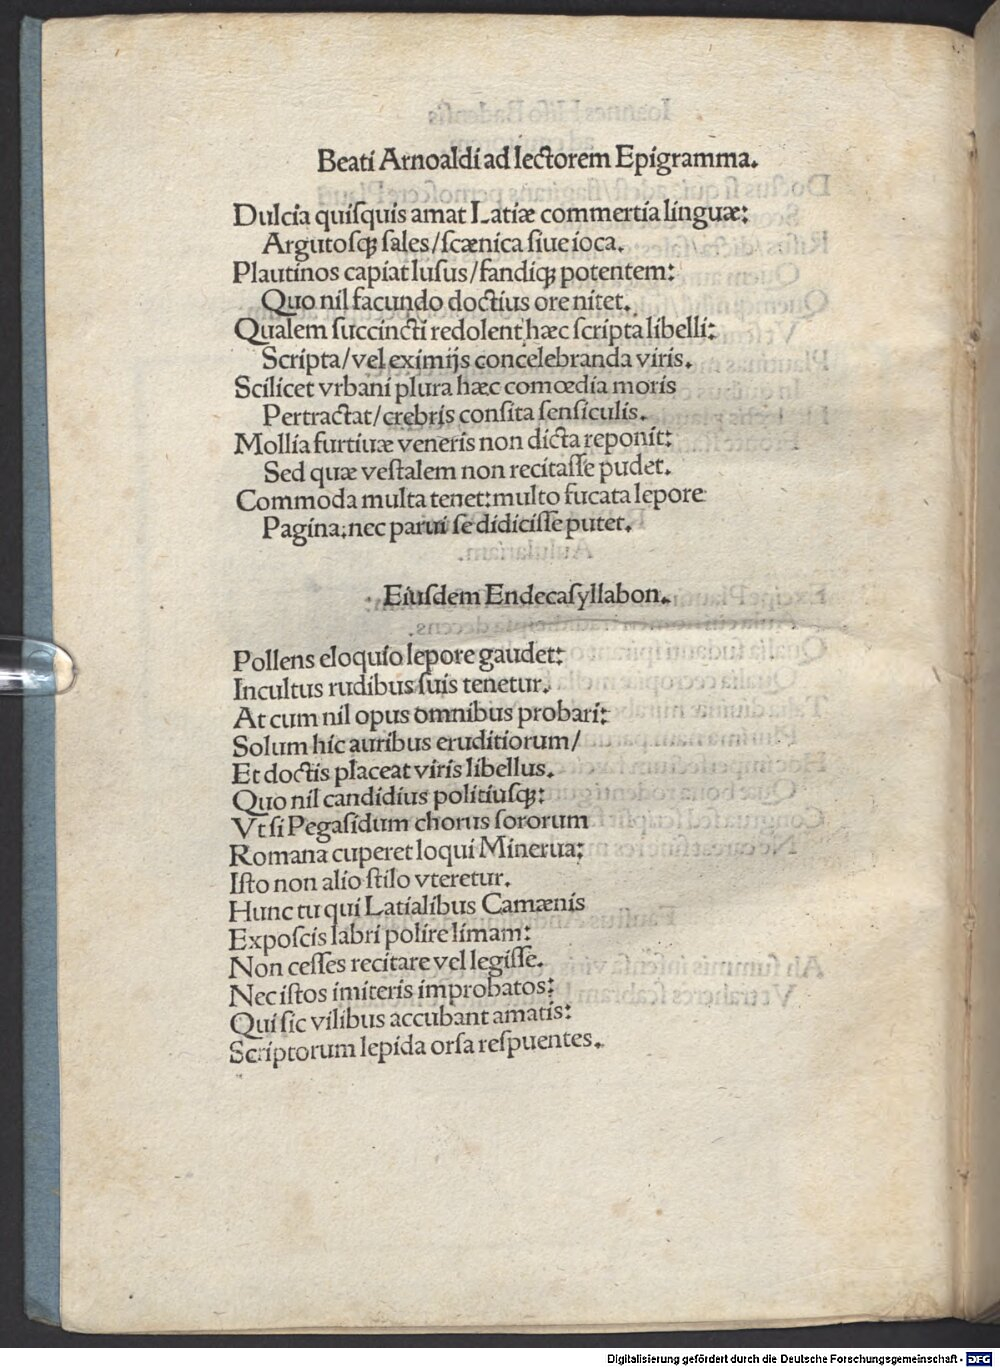 Beati Arnoaldi ad lectorem Epigramma.
Dulcia quiſquis amat Latiæ commertia linguæ:
Argutoſqꝫ ſales/ſcænica ſiue ioca.
Plautinos capiat luſus/fandiqꝫ potentem:
Quo nil facundo doctius ore nitet.
Qualem ſuccincti redolent hæc ſcripta libelli:
Scripta/vel eximijs concelebranda viris.
Scilicet vrbani plura hæc comœdia moris
Pertractat/crebris conſita ſenſiculis.
Mollia furtiuæ veneris non dicta reponit:
Sed quæ veſtalem non recitaſſe pudet.
Commoda multa tenet:multo fucata lepore
Pagina:nec parui ſe didiciſſe putet.
Eiuſdem Endecaſyllabon.
Pollens eloquio lepore gaudet:
Incultus rudibus ſuis tenetur.
At cum nil opus omnibus probari:
Solum hic auribus eruditiorum/
Et doctis placeat viris libellus.
Quo nil candidius politiuſqꝫ:
Vt ſi Pegaſidum chorus ſororum
Romana cuperet loqui Minerua:
Iſto non alio ſtilo vteretur.
Hunc tu qui Latialibus Camænis
Expoſcis labri polire limam:
Non ceſſes recitare vel legiſſe.
Nec iſtos imiteris improbatos:
Qui ſic vilibus accubant amatis:
Scriptorum lepida orſa reſpuentes.
Digitalisierung gefördert durch die Deutsche Forschungsgemeinschaft - DFG